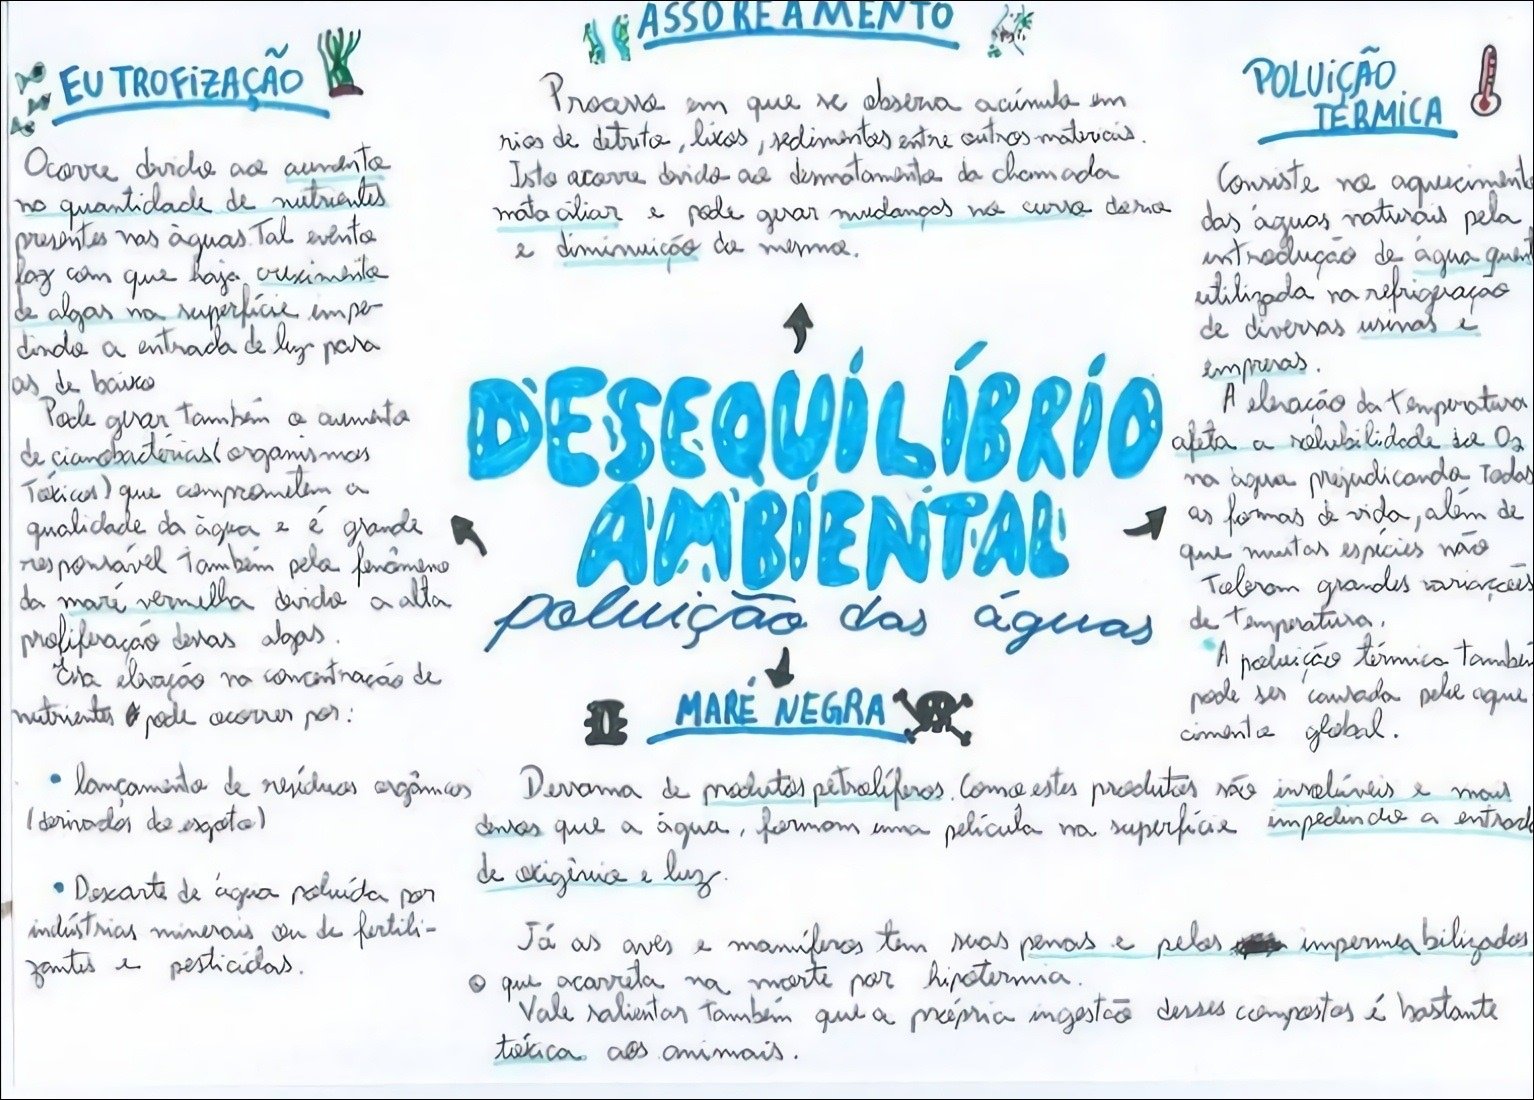 EUTROFIZAÇÃO
Ocorre devido ao aumento
na quantidade de nutrientes
presentes nas águas. Tal evento
faz com que haja crescimento
de algas na superfície impe-
dindo a entrada de luz para
as de baixo
Pode gerar também o aumento
de cianobactérias (organismos
tóxicos) que comprometem a
qualidade da água e é grande
responsável também pelo fenômeno
da maré vermelha devido a alta
proliferação dessas algas.
Essa elevação na concentração de
nutrientes pode ocorrer por:
• lançamento de resíduos orgânicos
(derivados do esgoto)
• Descarte de água poluída por
indústrias minerais ou de fertili-
zantes e pesticidas.
ASSOREAMENTO
Processo em que se observa acúmulo em
rios de detrito, lixos, sedimentos entre outros materiais.
Isto ocorre devido ao desmatamento da chamada
mata ciliar e pode gerar mudanças no curso deste
e diminuição do mesmo.
DESEQUILÍBRIO
AMBIENTAL
poluição das águas
POLUIÇÃO
TÉRMICA
Consiste no aquecimento
das águas naturais pela
introdução de água quent
utilizada na refrigeração
de diversas usinas e
empresas.
A elevação da temperatura
afeta a solubilidade do O2
na água prejudicando todas
as formas de vida, além de
que muitas espécies não
toleram grandes variações
de temperatura.
A poluição térmica também
pode ser causada pelo aque
cimento global.
MARÉ NEGRA
Derrama de produtos petrolíferos. Como estes produtos são insolúveis e mais
densos que a água, formam uma película na superfície impedindo a entrada
de oxigênio e luz.
Já as aves e mamíferos tem suas penas e pelos impermeabilizados
o que acarreta na morte por hipotermia.
Vale salientar também que a própria ingestão desses compostos é bastante
tóxica aos animais.